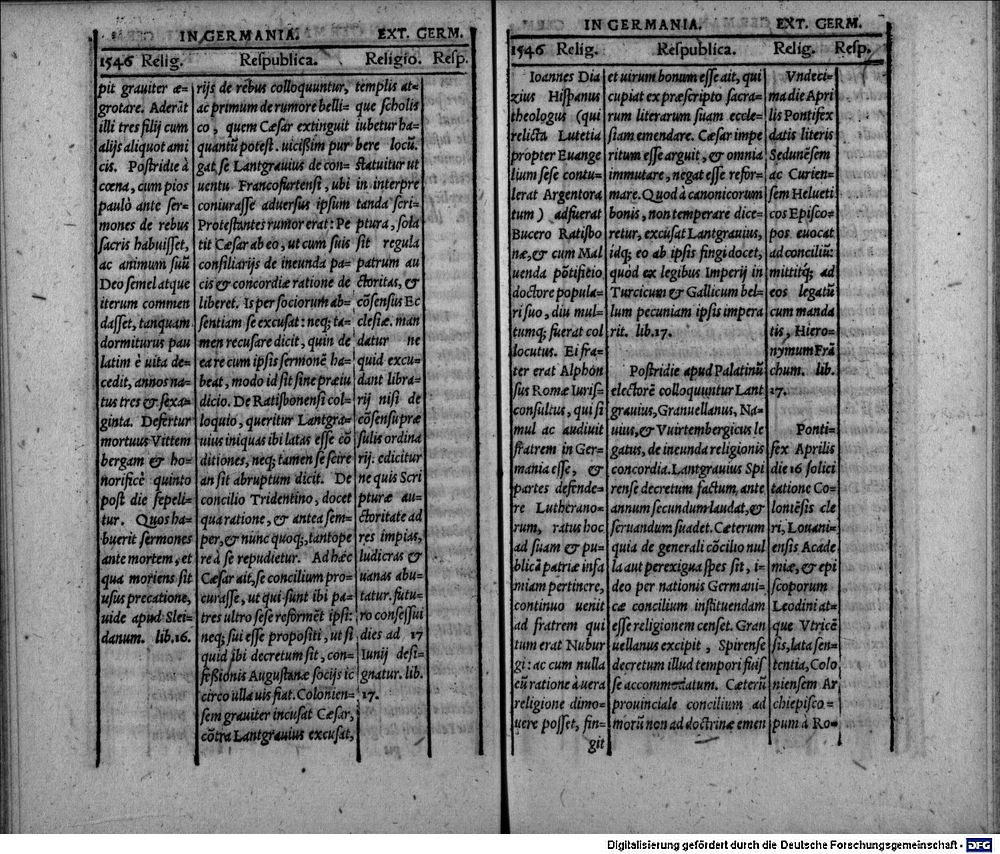 IN GERMANIA. EXT. GERM.
1546 Relig. Respublica. Religio. Resp.
pit grauiter æ=
grotare. Aderãt
illi tres filij cum
alijs aliquot ami
cis. Postridie à
cœna, cum pios
paulò ante ser=
mones de rebus
sacris habuisset,
ac animum suũ
Deo semel atque
iterum commen
dasset, tanquam
dormiturus pau
latim è uita de=
cedit, annos na=
tus tres & sexa=
ginta. Defertur
mortuus Vittem
bergam & ho=
norificè quinto
post die sepeli=
tur. Quos ha=
buerit sermones
ante mortem, et
qua moriens sit
usus precatione,
uide apud Slei=
danum. lib.16.
rijs de rebus colloquuntur,
ac primum de rumore belli=
co, quem Cæsar extinguit
quantũ potest. uicißim pur
gat, se Lantgrauius de con=
uentu Francofurtensi, ubi
coniurasse aduersus ipsum
Protestantes rumor erat: Pe
tit Cæsar ab eo, ut cum suis
consiliarijs de ineunda pa=
cis & concordiæ ratione de
liberet. Is per sociorum ab=
sentiam se excusat: neq; ta=
men recusare dicit, quin de
ea re cum ipsis sermonē ha=
beat, modo id sit sine præiu
dicio. De Ratisbonensi col=
loquio, queritur Lantgra=
uius iniquas ibi latas esse cō
ditiones, neq; tamen se scire
an sit abruptum dicit. De
concilio Tridentino, docet
qua ratione, & antea sem=
per, & nunc quoq;, tantope
re à se repudietur. Ad hæc
Cæsar ait, se concilium pro=
curasse, ut qui sunt ibi pa=
tres ultro sese reformēt ipsi:
neq; sui esse propositi, ut si
quid ibi decretum sit, con=
feßionis Augustanæ socijs ic
circo ulla uis fiat. Colonien=
sem grauiter incusat Cæsar,
cōtra Lantgrauius excusat,
templis at=
que scholis
iubetur ha=
bere locũ.
statuitur ut
in interpre
tanda scri=
ptura, sola
sit regula
patrum au
ctoritas, &
cōsensus Ec
clesiæ. man
datur ne
quid excu
dant libra=
rij nisi de
cōsensu præ
sulis ordina
rij. edicitur
ne quis Scri
pturæ au=
ctoritate ad
res impias,
ludicras &
uanas abu=
tatur. futu=
ro consessui
dies ad 17
Iunij desi=
gnatur. lib.
17.
IN GERMANIA. EXT. GERM.
1546 Relig. Respublica. Relig. Resp.
Ioannes Dia
zius Hispanus
theologus (qui
relicta Lutetia
propter Euange
lium sese contu=
lerat Argentora
tum) adfuerat
Bucero Ratisbo
næ, & cum Mal
uenda pōtificio
doctore popula=
ri suo, diu mul=
tumq; fuerat col
locutus. Ei fra=
ter erat Alphōn
sus Romæ Iuris=
consultus, qui si
mul ac audiuit
fratrem in Ger=
mania esse, &
partes defende=
re Lutherano=
rum, ratus hoc
ad suam & pu=
blicā patriæ infa
miam pertinere,
continuo uenit
ad fratrem qui
tum erat Nubur
gi: ac cum nulla
cũ ratione à uera
religione dimo=
uere posset, fin=
git
et uirum bonum esse ait, qui
cupiat ex præscripto sacra=
rum literarum suam eccle=
siam emendare. Cæsar impe
ritum esse arguit, & omnia
immutare, negat esse refor=
mare. Quod à canonicorum
bonis, non temperare dice=
retur, excusat Lantgrauius,
idq; eo ab ipsis fingi docet,
quòd ex legibus Imperij in
Turcicum & Gallicum bel=
lum pecuniam ipsis impera
rit. lib.17.
Postridie apud Palatinũ
electorē colloquuntur Lant
grauius, Granuellanus, Na=
uius, & Vuirtembergicus le
gatus, de ineunda religionis
concordia. Lantgrauius Spi
rense decretum factum, ante
annum secundum laudat, &
seruandum suadet. Cæterum
quia de generali cōcilio nul
la aut perexigua spes sit, i=
deo per nationis Germani=
cæ concilium instituendam
esse religionem censet. Gran
uellanus excipit, Spirense
decretum illud tempori fuis
se accommodatum. Cæterũ
prouinciale concilium ad
morũ non ad doctrinæ emen
Vndeci=
ma die Apri
lis Pontifex
datis literis
Sedunēsem
ac Curien=
sem Helueti
cos Episco=
pos euocat
ad conciliũ:
mittitq; ad
eos legatũ
cum manda
tis, Hiero=
nymum Frā
chum. lib.
17.
Ponti=
fex Aprilis
die 16 solici
tatione Co=
loniēsis cle
ri, Louani=
ensis Acade
miæ, & epi
scoporum
Leodini at=
que Vtricē
sis, lata sen=
tentia, Colo
niensem Ar
chiepisco=
pum à Ro=
Digitalisierung gefördert durch die Deutsche Forschungsgemeinschaft - DFG